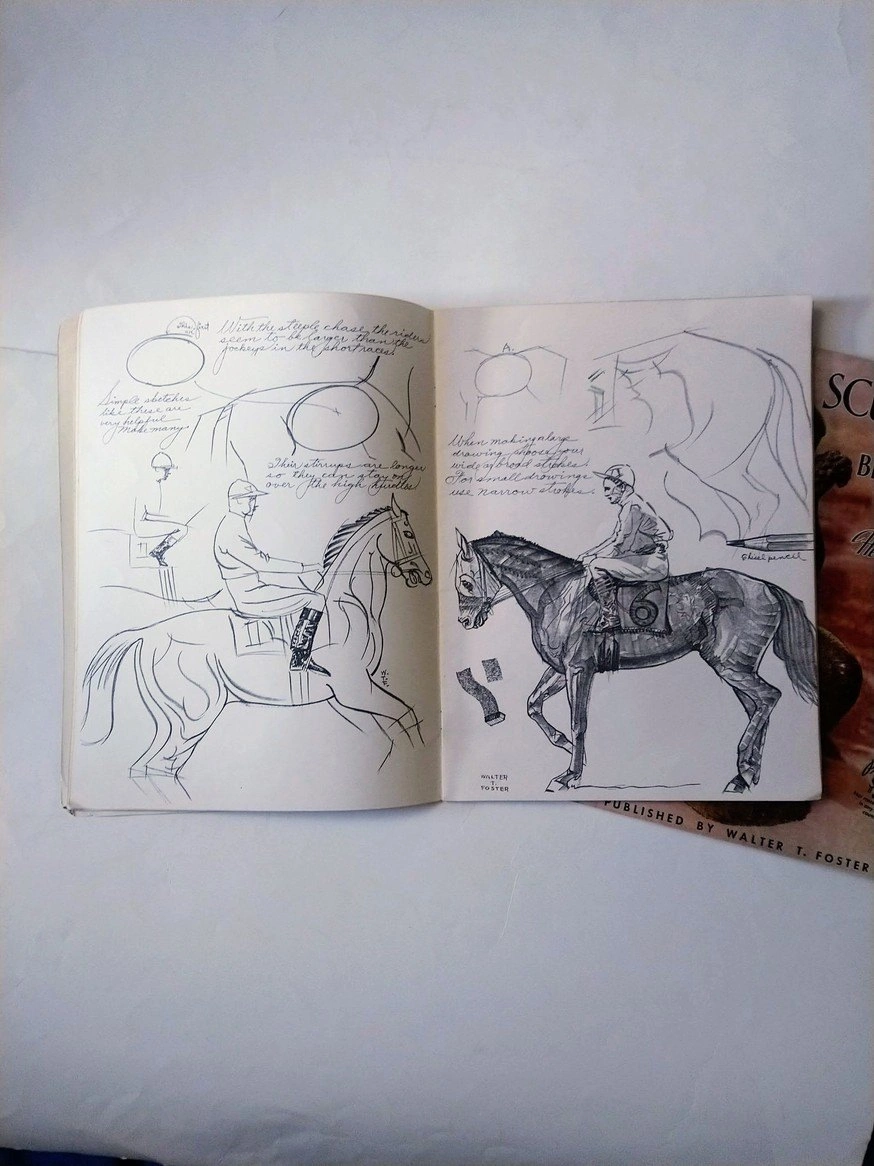 Draw first
With the steeple chase the riders
seem to be larger than the
jockeys in the short races.
Simple sketches
like these are
very helpful
Make many.
Their stirrups are longer
so they can stay on
over the high hurdles
W.
T.
F.
A.
When making large
drawing choose your
wide or broad strokes.
For small drawings
use narrow strokes.
chisel pencil
6
WALTER
T.
FOSTER
SC
B
PUBLISHED BY WALTER T. FOSTER